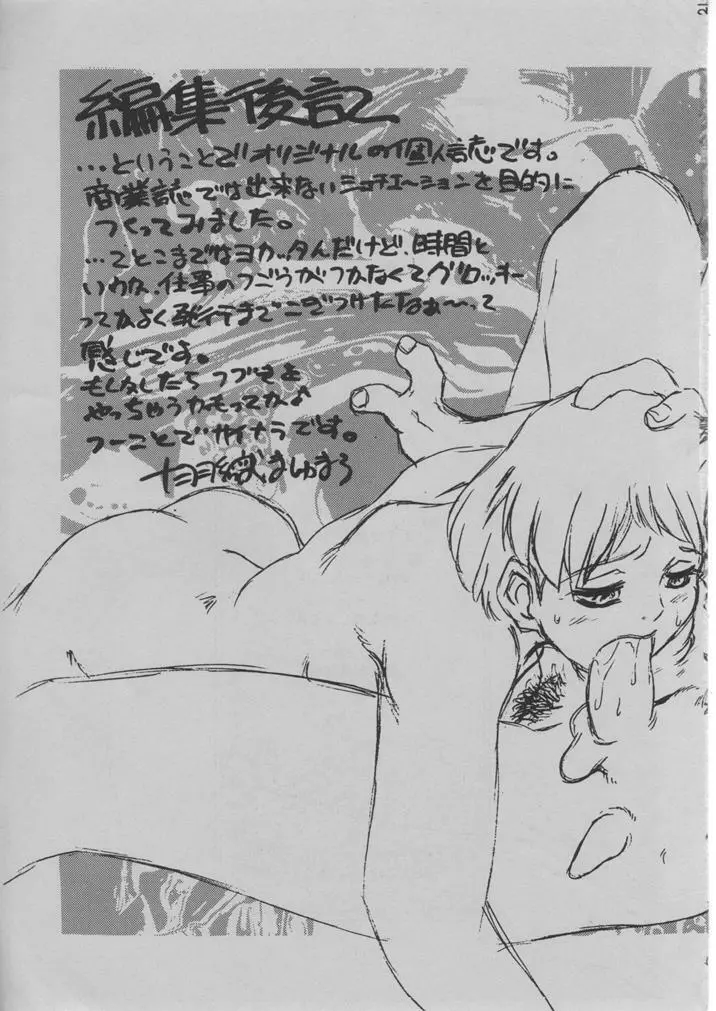 21
編集後記
…ということでオリジナルの個人誌です。
商業誌では出来ないシュチエーションを目的に
つくってみました。
…てとこまではヨカッタんだけど、時間と
いうか、仕事のつごうがつかなくてグロッキー
ってかよく発行までこぎつけたなぁ〜って
感じです。
もしかしたら つづきを
やっちゃうかもってかンジ
つーことで サイナラです。